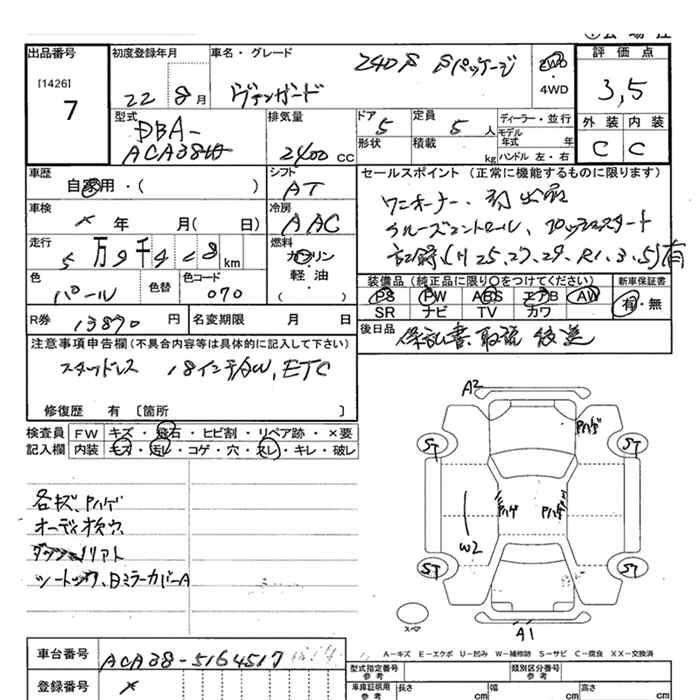 出品番号
[1426]
7
初度登録年月
22 8月
車名・グレード
240S Sパッケージ
ヴァンガード
2WD
・
4WD
評価点
3,5
外装 内装
C C
型式
DBA-
ACA38W
排気量
2400cc
ドア
5
定員
5人
形状
積載
kg
ディーラー・並行
モデル年式 年
ハンドル 左・右
車歴
自家用・( )
シフト
AT
車検
年 月(日)
冷房
AAC
走行
5万9千4 8km
燃料
ガソリン
・
軽・油
( )
色
パール
色替
色コード
070
セールスポイント(正常に機能するものに限ります)
ワンオーナー、
クルーズコントロール、プッシュスタート
記録(H25,27,29,R1,3,5)有
装備品(純正品に限り○をつけてください)
新車保証書
PS PW ABS エアB AW
SR ナビ TV カワ
有・無
R券 13870円
名変期限 月 日
後日品
保証書 取説 後送
注意事項申告欄(不具合内容等は具体的に記入して下さい)
スタッドレス 18インチAW、ETC
修復歴 有 [箇所 ]
検査員 FW キズ・飛石・ヒビ割・リペア跡・×要
記入欄 内装 キズ・汚レ・コゲ・穴・スレ・キレ・破レ
各キズ、Pハゲ
オーディオ
リアト
、日ミラーカバーA
A2
Pハゲ
ST ST
Pハゲ Pハゲ
W2
ST ST
スペア
A1
A-キズ E-エクボ U-凹み W-補修跡 S-サビ C-腐食 XX-交換済
車台番号 ACA38-5164517
登録番号
型式指定番号
参考
類別区分番号
参考
車庫証明用
参考
長さ cm
幅 cm
高さ cm